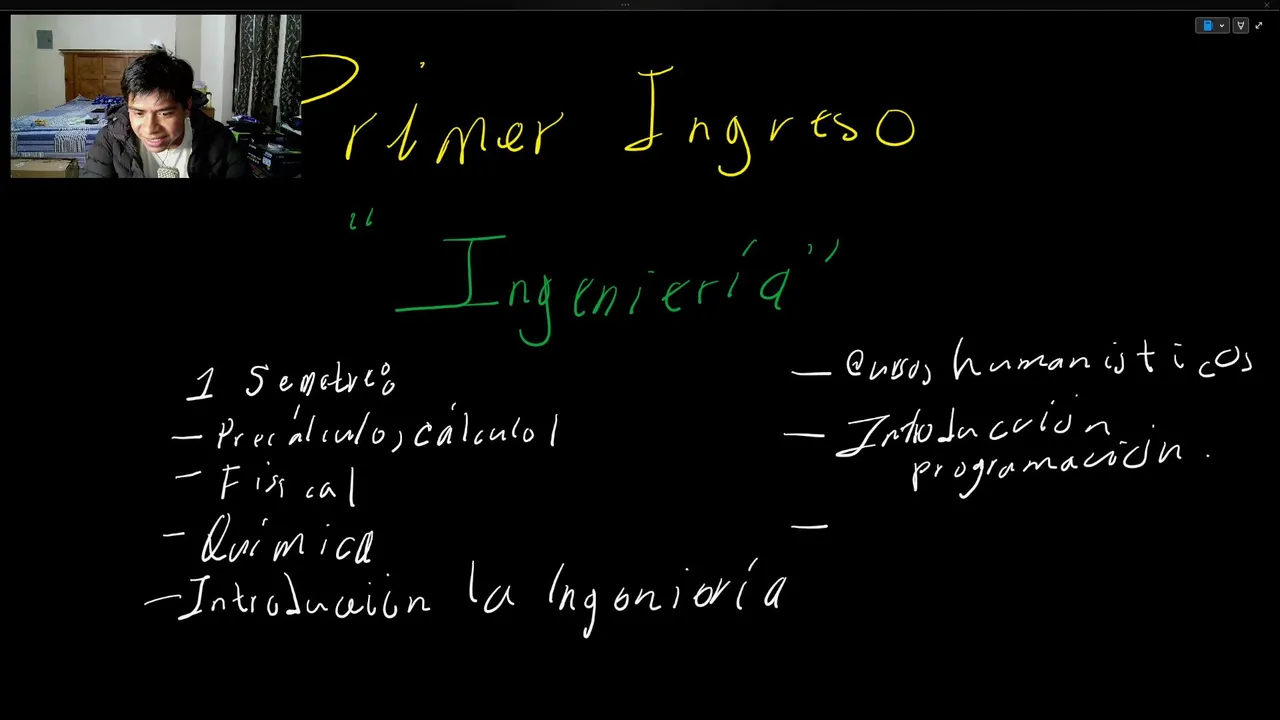 Primer Ingreso
"Ingeniería"
1 Semetre:
- Precálculo, cálculo 1
- Física 1
- Química
- Introducción la Ingeniería
- Cursos humanisticos
- Introducción
programación.
-